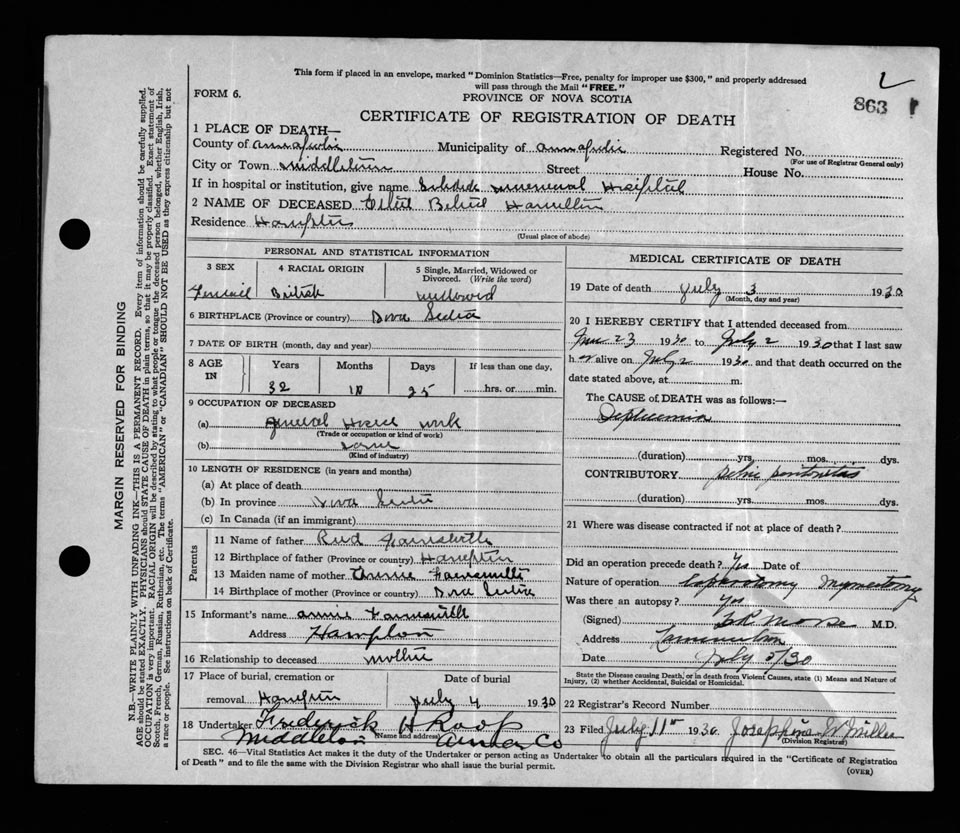 This form if placed in an envelope, marked "Dominion Statistics—Free, penalty for improper use $300," and properly addressed
will pass through the Mail "FREE."
FORM 6.
PROVINCE OF NOVA SCOTIA
863
CERTIFICATE OF REGISTRATION OF DEATH
1 PLACE OF DEATH—
County of Annapolis Municipality of Annapolis Registered No.
(For use of Registrar General only)
City or Town Middleton Street House No.
If in hospital or institution, give name Memorial Hospital
2 NAME OF DECEASED Hamilton
Residence Hampton
(Usual place of abode)
PERSONAL AND STATISTICAL INFORMATION
3 SEX 4 RACIAL ORIGIN 5 Single, Married, Widowed or
Divorced. (Write the word)
British widowed
6 BIRTHPLACE (Province or country)
7 DATE OF BIRTH (month, day and year)
8 AGE
IN
Years Months Days If less than one day,
32 25 hrs. or min.
9 OCCUPATION OF DECEASED
(a) general House work
(Trade or occupation or kind of work)
(b)
(Kind of industry)
10 LENGTH OF RESIDENCE (in years and months)
(a) At place of death
(b) In province
(c) In Canada (if an immigrant)
Parents
11 Name of father
12 Birthplace of father (Province or country) Hampton
13 Maiden name of mother
14 Birthplace of mother (Province or country)
15 Informant's name
Address Hampton
16 Relationship to deceased mother
17 Place of burial, cremation or
removal Hampton
Date of burial
July 4 1930
18 Undertaker Frederick H Roop
(Name and address)
Middleton Anna Co
MEDICAL CERTIFICATE OF DEATH
19 Date of death July 3 1930
(Month, day and year)
20 I HEREBY CERTIFY that I attended deceased from
23 1930 to July 2 1930 that I last saw
h er alive on July 2 1930 and that death occurred on the
date stated above, at m.
The CAUSE OF DEATH was as follows:—
(duration) yrs. mos. dys.
CONTRIBUTORY pelvic peritonitis
(duration) yrs. mos. dys.
21 Where was disease contracted if not at place of death?
Did an operation precede death? Yes Date of
Nature of operation Laparotomy Myomectomy
Was there an autopsy? Yes
(Signed) Morse M.D.
Address
Date July 5/30
State the Disease causing Death, or in death from Violent Causes, state (1) Means and Nature of
Injury, (2) whether Accidental, Suicidal or Homicidal.
22 Registrar's Record Number
23 Filed July 11th 1930. Josephine W Miller
(Division Registrar)
SEC. 46—Vital Statistics Act makes it the duty of the Undertaker or person acting as Undertaker to obtain all the particulars required in the "Certificate of Registration
of Death" and to file the same with the Division Registrar who shall issue the burial permit.
(OVER)
MARGIN RESERVED FOR BINDING
N.B.—WRITE PLAINLY WITH UNFADING INK—THIS IS A PERMANENT RECORD. Every item of information should be carefully supplied.
AGE should be stated EXACTLY. PHYSICIANS should STATE CAUSE OF DEATH in plain terms, so that it may be properly classified. Exact statement of
OCCUPATION is very important. RACIAL ORIGIN will be described by stating to what people or tongue the deceased person belonged, whether English, Irish,
Scotch, French, German, Russian, Ruthenian, etc. The terms "AMERICAN" or "CANADIAN" SHOULD NOT BE USED as they express citizenship but not
a race or people. See instructions on back of Certificate.